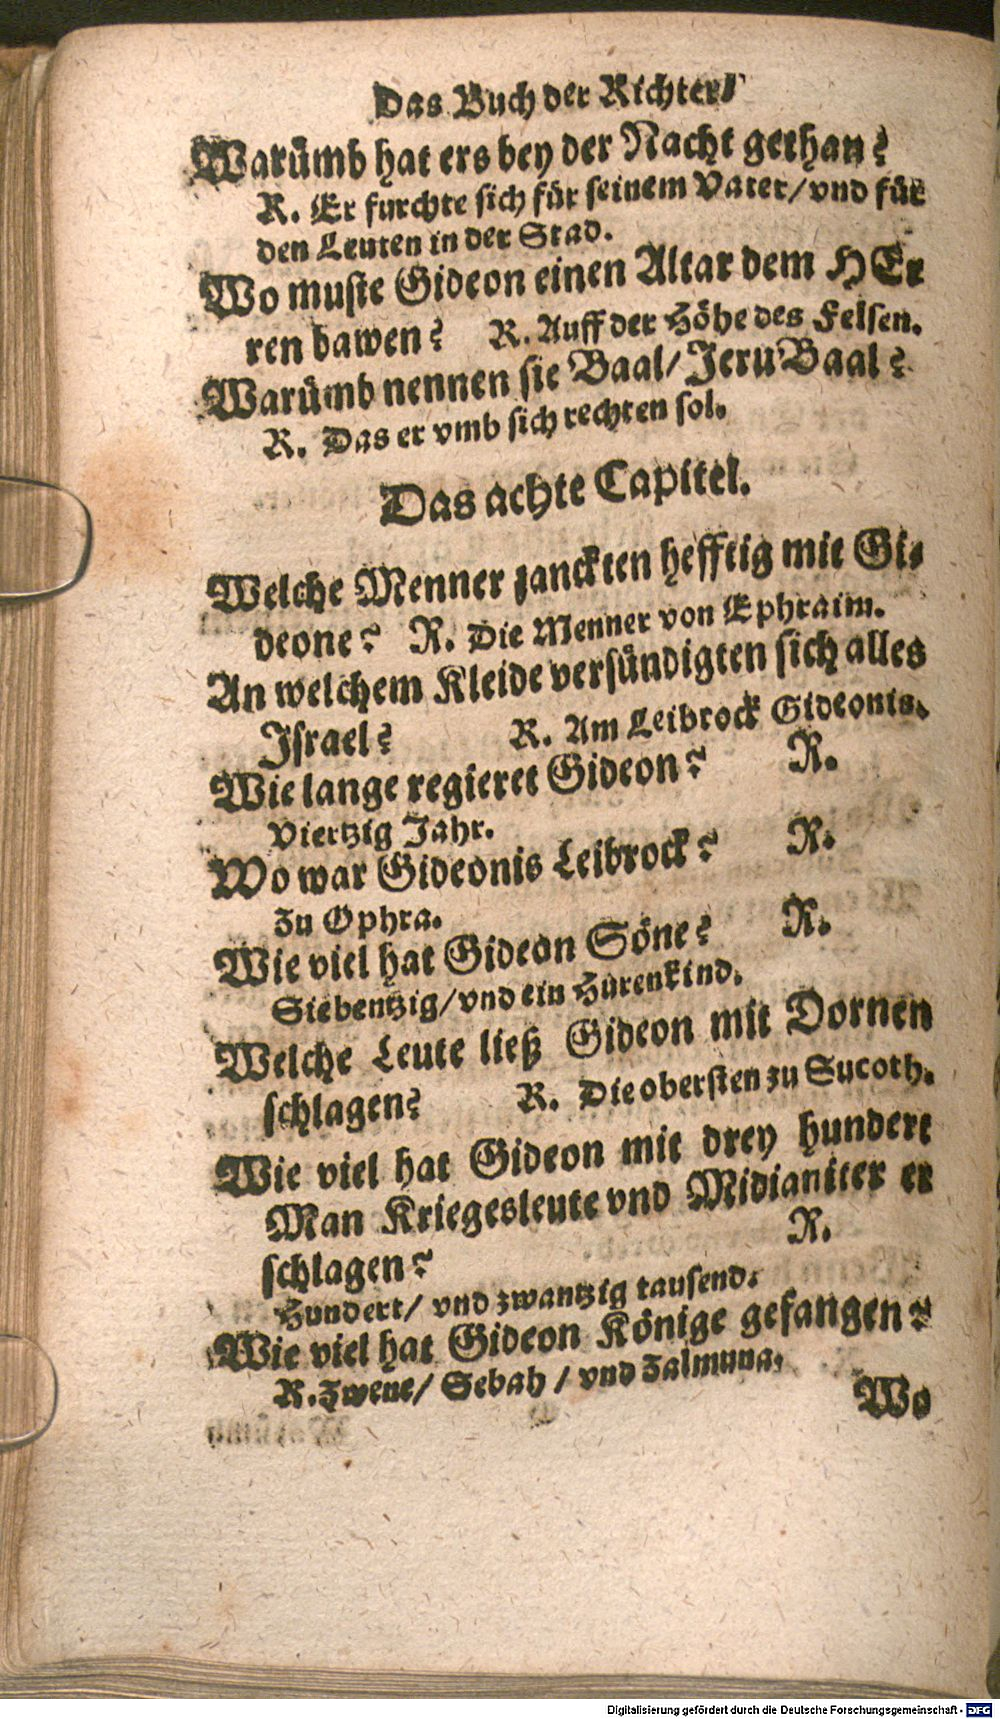 Das Buch der Richter/
Warümb hat ers bey der Nacht gethan?
R. Er furchte sich für seinem Vater/ vnd für
den Leuten in der Stad.
Wo muste Gideon einen Altar dem HEr
ren bawen? R. Auff der Höhe des Felsen.
Warümb nennen sie Baal/ JeruBaal?
R. Das er vmb sich rechten sol.
Das achte Capitel.
Welche Menner zanckten hefftig mit Gi⸗
deone? R. Die Menner von Ephraim.
An welchem Kleide versündigten sich alles
Israel? R. Am Leibrock Gideonis.
Wie lange regieret Gideon? R.
Viertzig Jahr.
Wo war Gideonis Leibrock? R.
Zu Ophra.
Wie viel hat Gideon Söne? R.
Siebentzig/ vnd ein Hurenkind.
Welche Leute ließ Gideon mit Dornen
schlagen? R. Die obersten zu Sucoth.
Wie viel hat Gideon mit drey hundert
Man Kriegesleute vnd Midianiter er
schlagen? R.
Hundert/ vnd zwantzig tausend.
Wie viel hat Gideon Könige gefangen?
R. Zwene/ Sebah/ vnd Zalmuna.
Wo
Digitalisierung gefördert durch die Deutsche Forschungsgemeinschaft - DFG